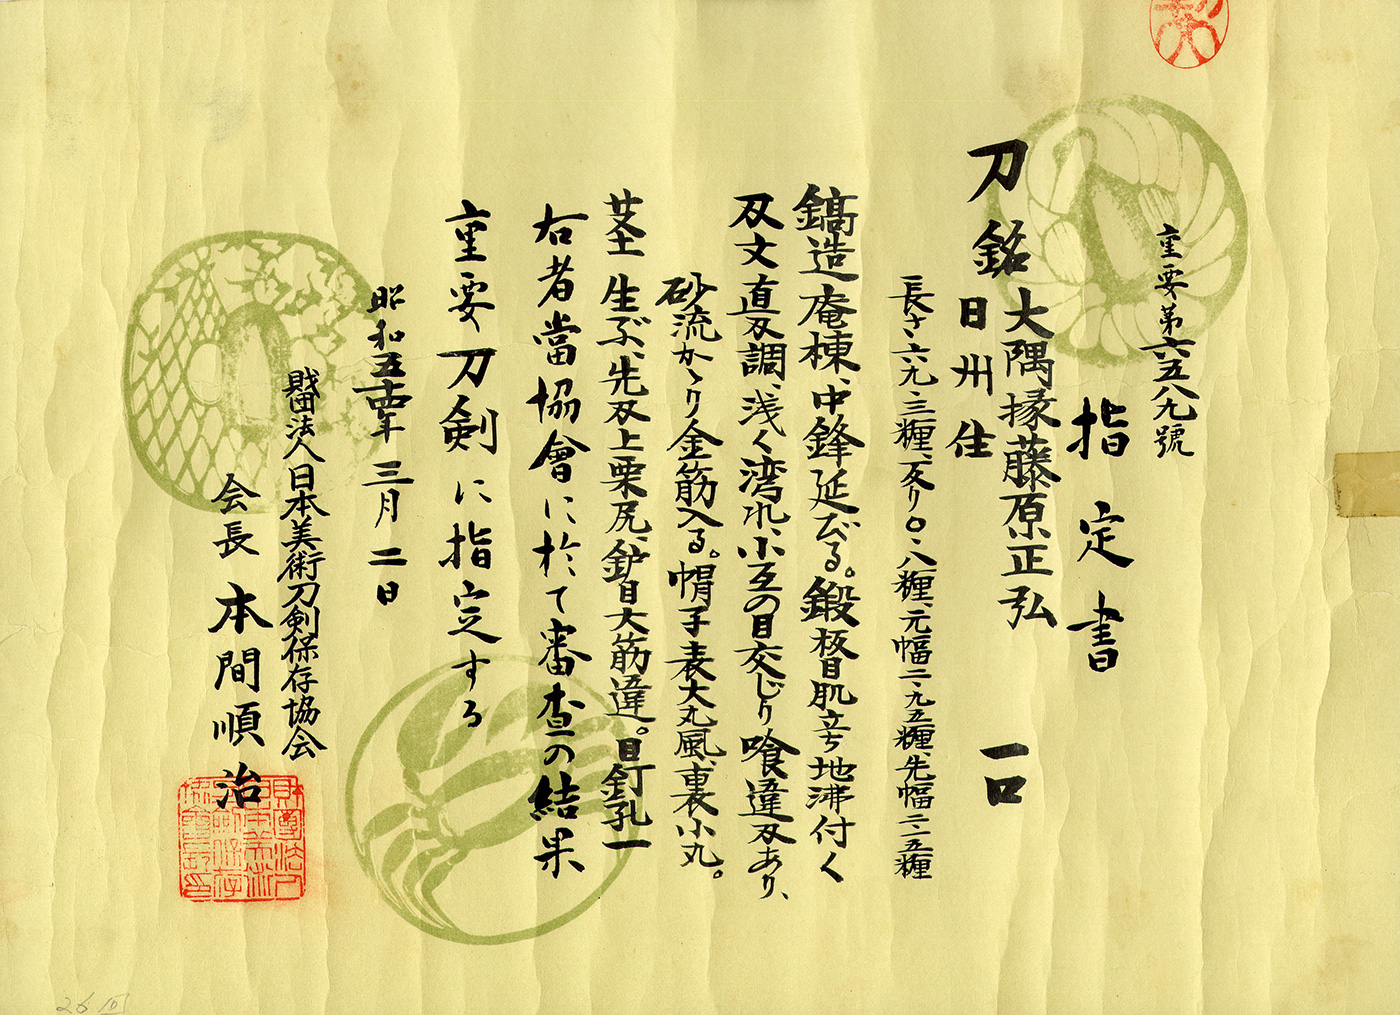 重要第六五八九號
指定書
刀 銘 大隅掾藤原正弘 一口
日州住
長さ、六九・三糎、反り〇・八糎、元幅二・九五糎、先幅二・一五糎
鎬造庵棟、中鋒延びる。鍛板目肌立ち地沸付く
刃文直刃調、浅く湾れ、小互の目交じり喰違刃あり、
砂流かゝり金筋入る。帽子表大丸風、裏小丸。
茎 生ぶ、先刃上栗尻、鈩目大筋違。目釘孔一
右者當協會に於て審査の結果
重要刀剣に指定する
昭和五十四年三月二日
財団法人日本美術刀剣保存協会
会長 本間順治
26